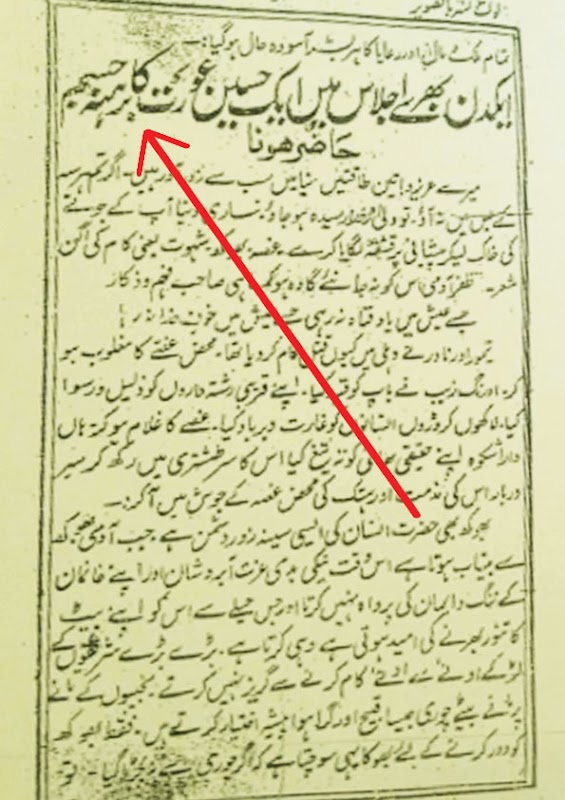 تمام ملک مالا مال اور رعایا کا ہر بشر آسودہ حال ہوگیا:۔
ایکدن بھرے اجلاس میں ایک حسین عورت کا برہنہ جسم
حاضر ہونا
میرے عزیز و! تین طاقتیں دنیا میں سب سے زور آور ہیں۔ اگر تم ہرسہ
کے بس میں نہ آؤ۔ تو ولی خدا رسیدہ ہو جاؤ۔ ساری دنیا آپ کے جوتے
کی خاک لیکر پیشانی پر قشقہ لگایا کرے۔ غصہ۔ بھوکھ۔ شہوت یعنی کام کی اگن
شعر۔ ظفر آدمی اس کو نہ جانئے گا وہ ہو کیسا ہی صاحب فہم و ذکا
جسے عیش میں یاد خدا نہ رہی جسے طیش میں خوف خدا نہ رہا
تیمور اور نادر نے دہلی میں کیوں قتل عام کر دیا تھا۔ محض غصے کا مغلوب ہو
کر۔ اورنگ زیب نے باپ کو قید کیا۔ اپنے قریبی رشتہ داروں کو ذلیل و رسوا
کیا۔ لاکھوں کروڑوں انسانوں کو غارت و برباد کیا۔ غصے کا غلام ہو کر تہاں
داراشکوہ اپنے حقیقی بھائی کو تہ تیغ کیا اس کا سر طشتری میں رکھ کر سر
دربار اس کی مذمت اور ہتک کی محض غصہ کے جوش میں آکر:۔
بھوکھ بھی حضرت انسان کی ایسی سینہ زور دشمن ہے۔ جب آدمی بھوکھ
سے بیتاب ہوتا ہے اس وقت نیکی بدی عزت آبرو شان اور اپنے خاندان
کے ننگ و ایمان کی پرواہ نہیں کرتا اور جس حیلے سے اس کو اپنے پیٹ
کا تنور بھرنے کی امید ہوتی ہے وہی کرتا ہے۔ بڑے بڑے شریفوں کے
لڑکے ادنے سے ادنے کام کرنے سے گریز نہیں کرتے۔ نجیبوں کے
بیٹے چوری جیسا قبیح اور گرا ہوا پیشہ اختیار کرتے ہیں۔ فقط بھوکھ
کو دور کرنے کے لیے بھوکا یہی سوچتا ہے کہ اگر چوری سے پکڑا گیا۔ تو